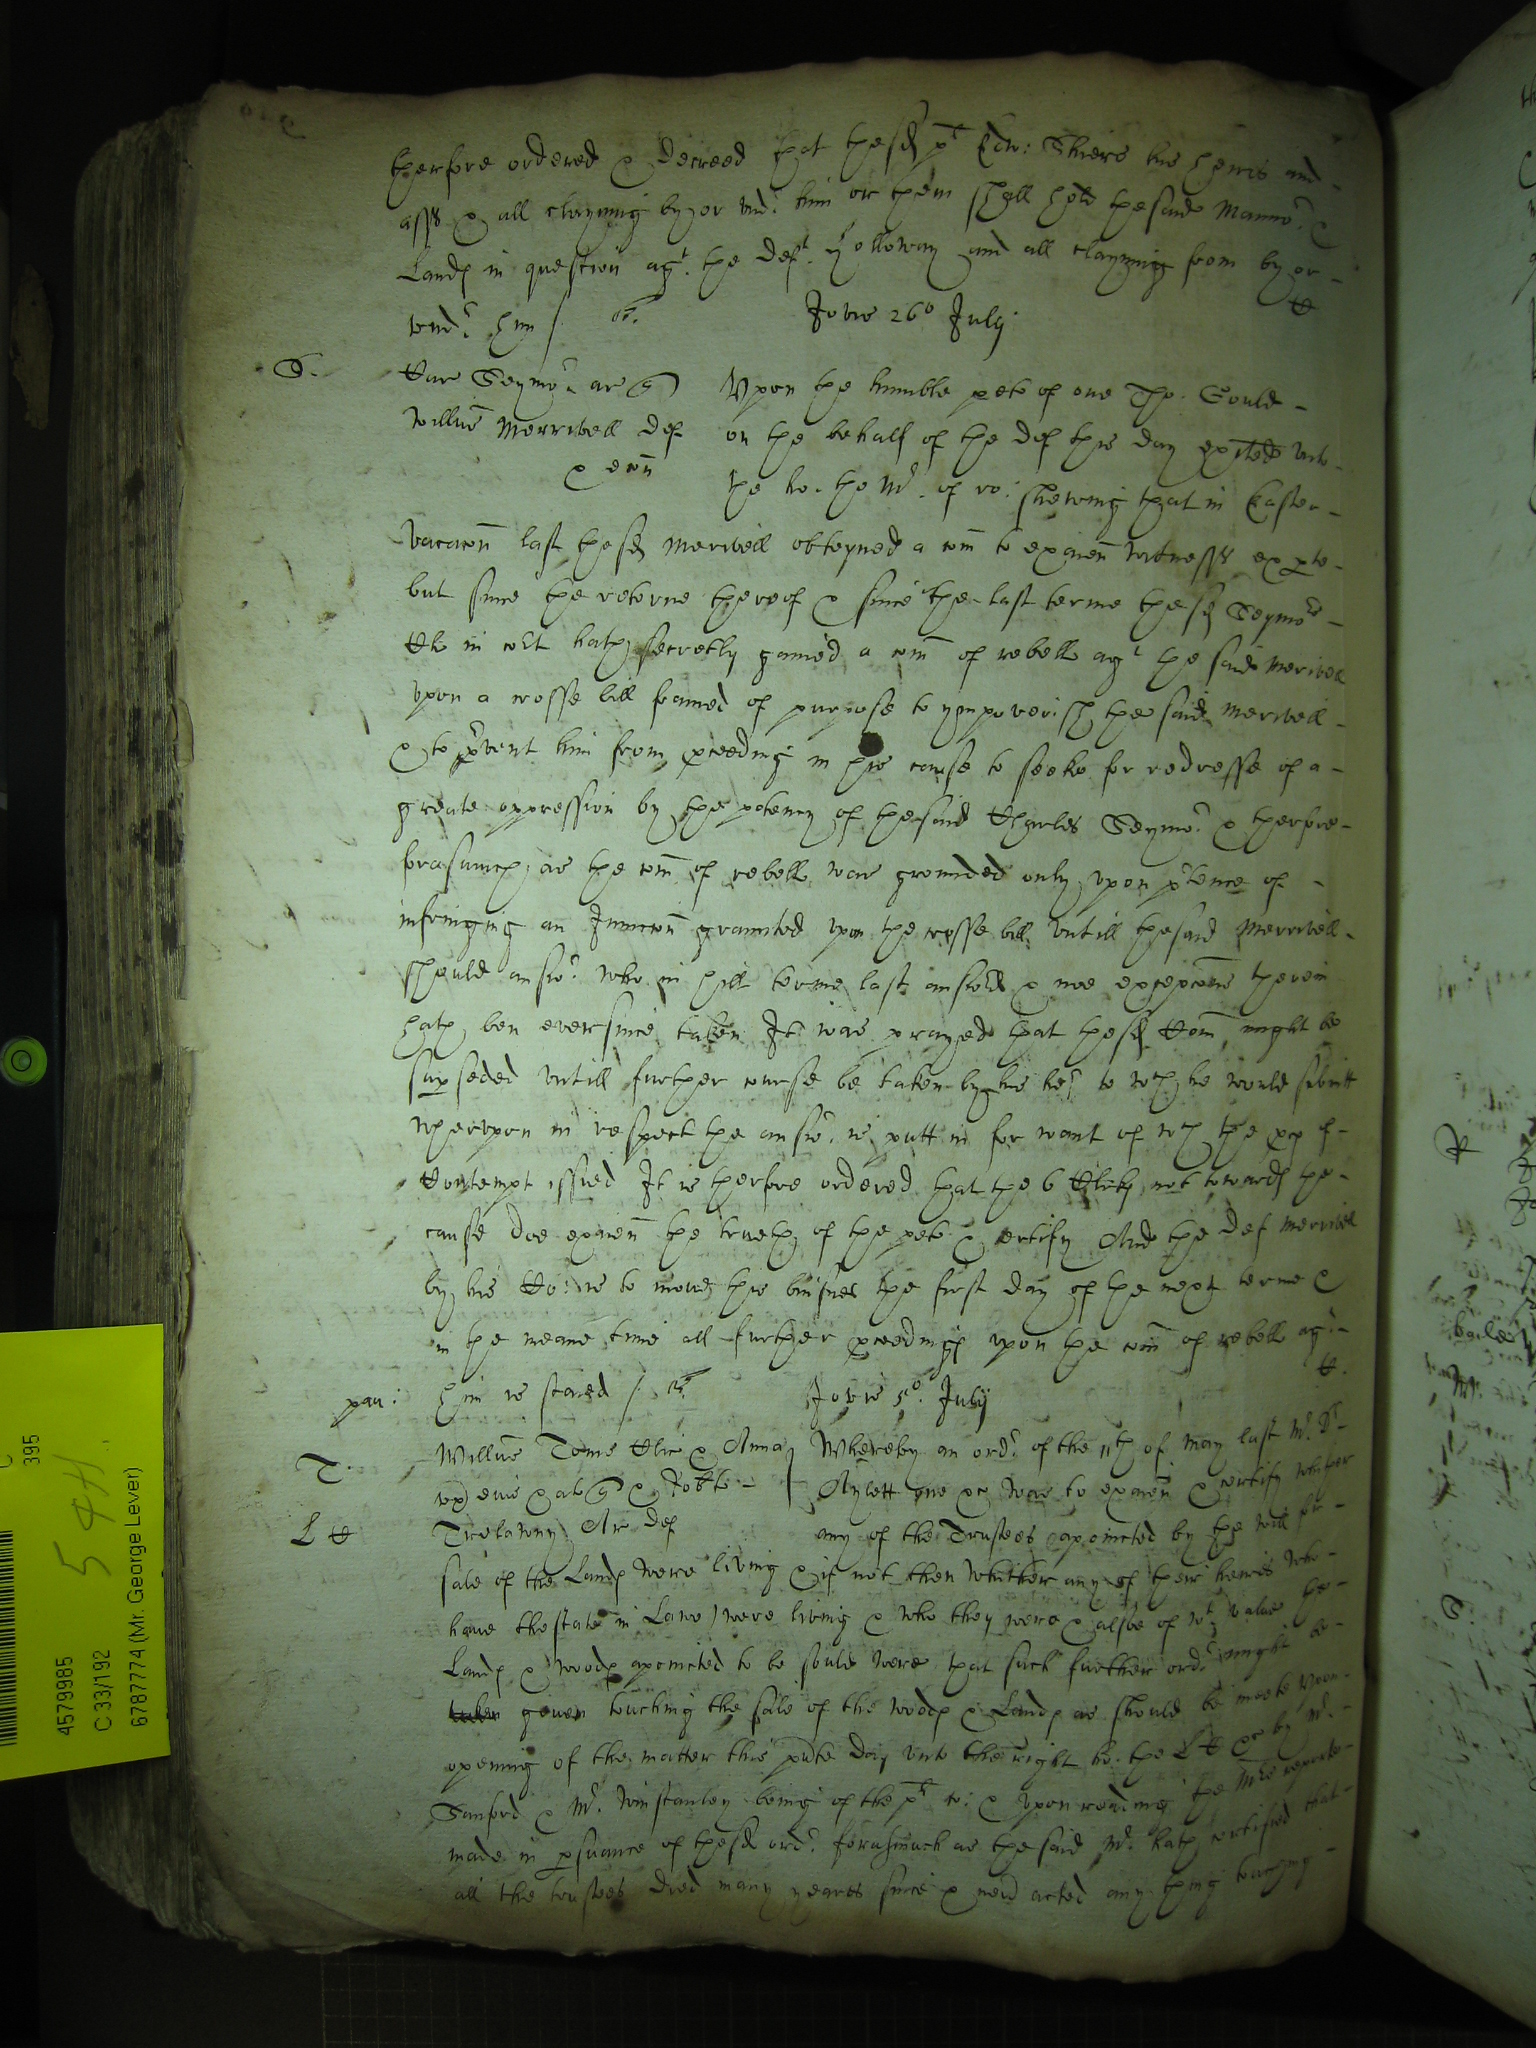 therfore ordered & decreed that the sd pt Edw: Shiers his heires and
asss & all clayming by or und.r him or them shall hold the said Mannor &
Land in question agt. the deft. Holloway and all clayming from by or
und.r him /
Jovis 26o July
S.
Car Seymor ar q
Upon the humble peto of one Tho. Gould
Willus Merriwell def
on the behalf of the def this day exhited unto
& econ
the ho. the Mr. of ro: shewing that in Easter
vacacon last the sd Meriwell obteyned a com to examen witnesses exparte
but since the retorne thereof & since the last terme the sd Seymor
in hath secretly gained a com of rebell agt the said Meriwell
upon a crosse bill framed of purpose to ympoverish the said Meriwell
& to pvent him from pceeding in his cause to seeke for redresse of a
greate oppression by the potency of the said Charles Seymor & therfore
forasmuch as the com of rebell was grounded only upon ptence of
infringing an Iniuncon graunted upon the crosse bill untill the said Merriwell
should answr who in Hill terme last answerd & noe excepcons therein
hath ben ever since taken It was prayed that the sd Com might be
supseded untill further course be taken by his to wch he would submitt
wherupon in respect the answr is putt in for want of wch the pcs of
Contempt issued It is therfore ordered that the 6 Clerks not towards the
cause doe examen the trueth of the peto & certify And the def Merriwell
by his Co: is to move this busines the first day of the next terme &
in the meane time all further pceedings upon the com of rebell agt
him is staied /
pan:
Jovis 5o July
T.
Willus Tome & Anna
Whereby an ordr of the 11th of May last Mr. Dr
ux eius
Aylett one &c was to examen & certify whither
L C
Trelawny Ar def
any of the Trustees apointed by the will for
sale of the Lands were living & if not then whither any of their heires who
have thestate in Lawe were living & who they were & alsoe of wt value the
Lands & woods apointed to be sould were that such further ordr might be
taken given touching the sale of the woods & Lands as should be meete Upon
opening of the matter this pnte day unto the right ho: the L C &c by Mr.
Sanford & Mr. Winstanley being of the pt co: & upon reading the Mrs reporte
made in psuance of the sd ordr. forasmuch as the said Mr. hath certified that
all the trustees died many yeares since & acted any thing touching
4579985
C 33/192
6787774 (Mr. George Lever)
C
395
54H